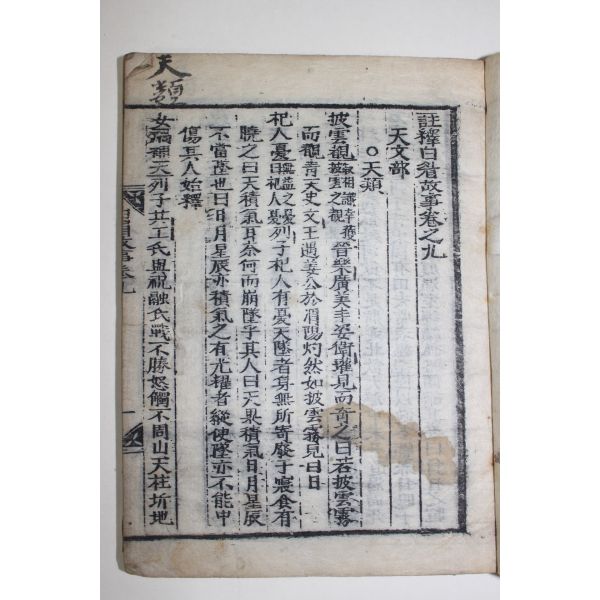 天類
註釋白眉故事卷之九
天文部
○天類
披雲覩 叙相謙幸獲披雲之覩 晉樂廣美丰姿衛瓘見而奇之曰若披雲霧
而覩青天史文王遇姜公於渭陽灼然如披雲霧見白日
杞人憂 無益之憂曰杞人憂 列子杞人有憂天墜者身無所寄廢于寢食有
曉之曰天積氣耳奈何而崩墜乎其人曰天果積氣日月星辰
不當墜也曰日月星辰亦積氣之有光耀者縱使墜亦不能中
傷其人始釋
女媧補天列子共工氏與祝融氏戰不勝怒觸不周山天柱折地